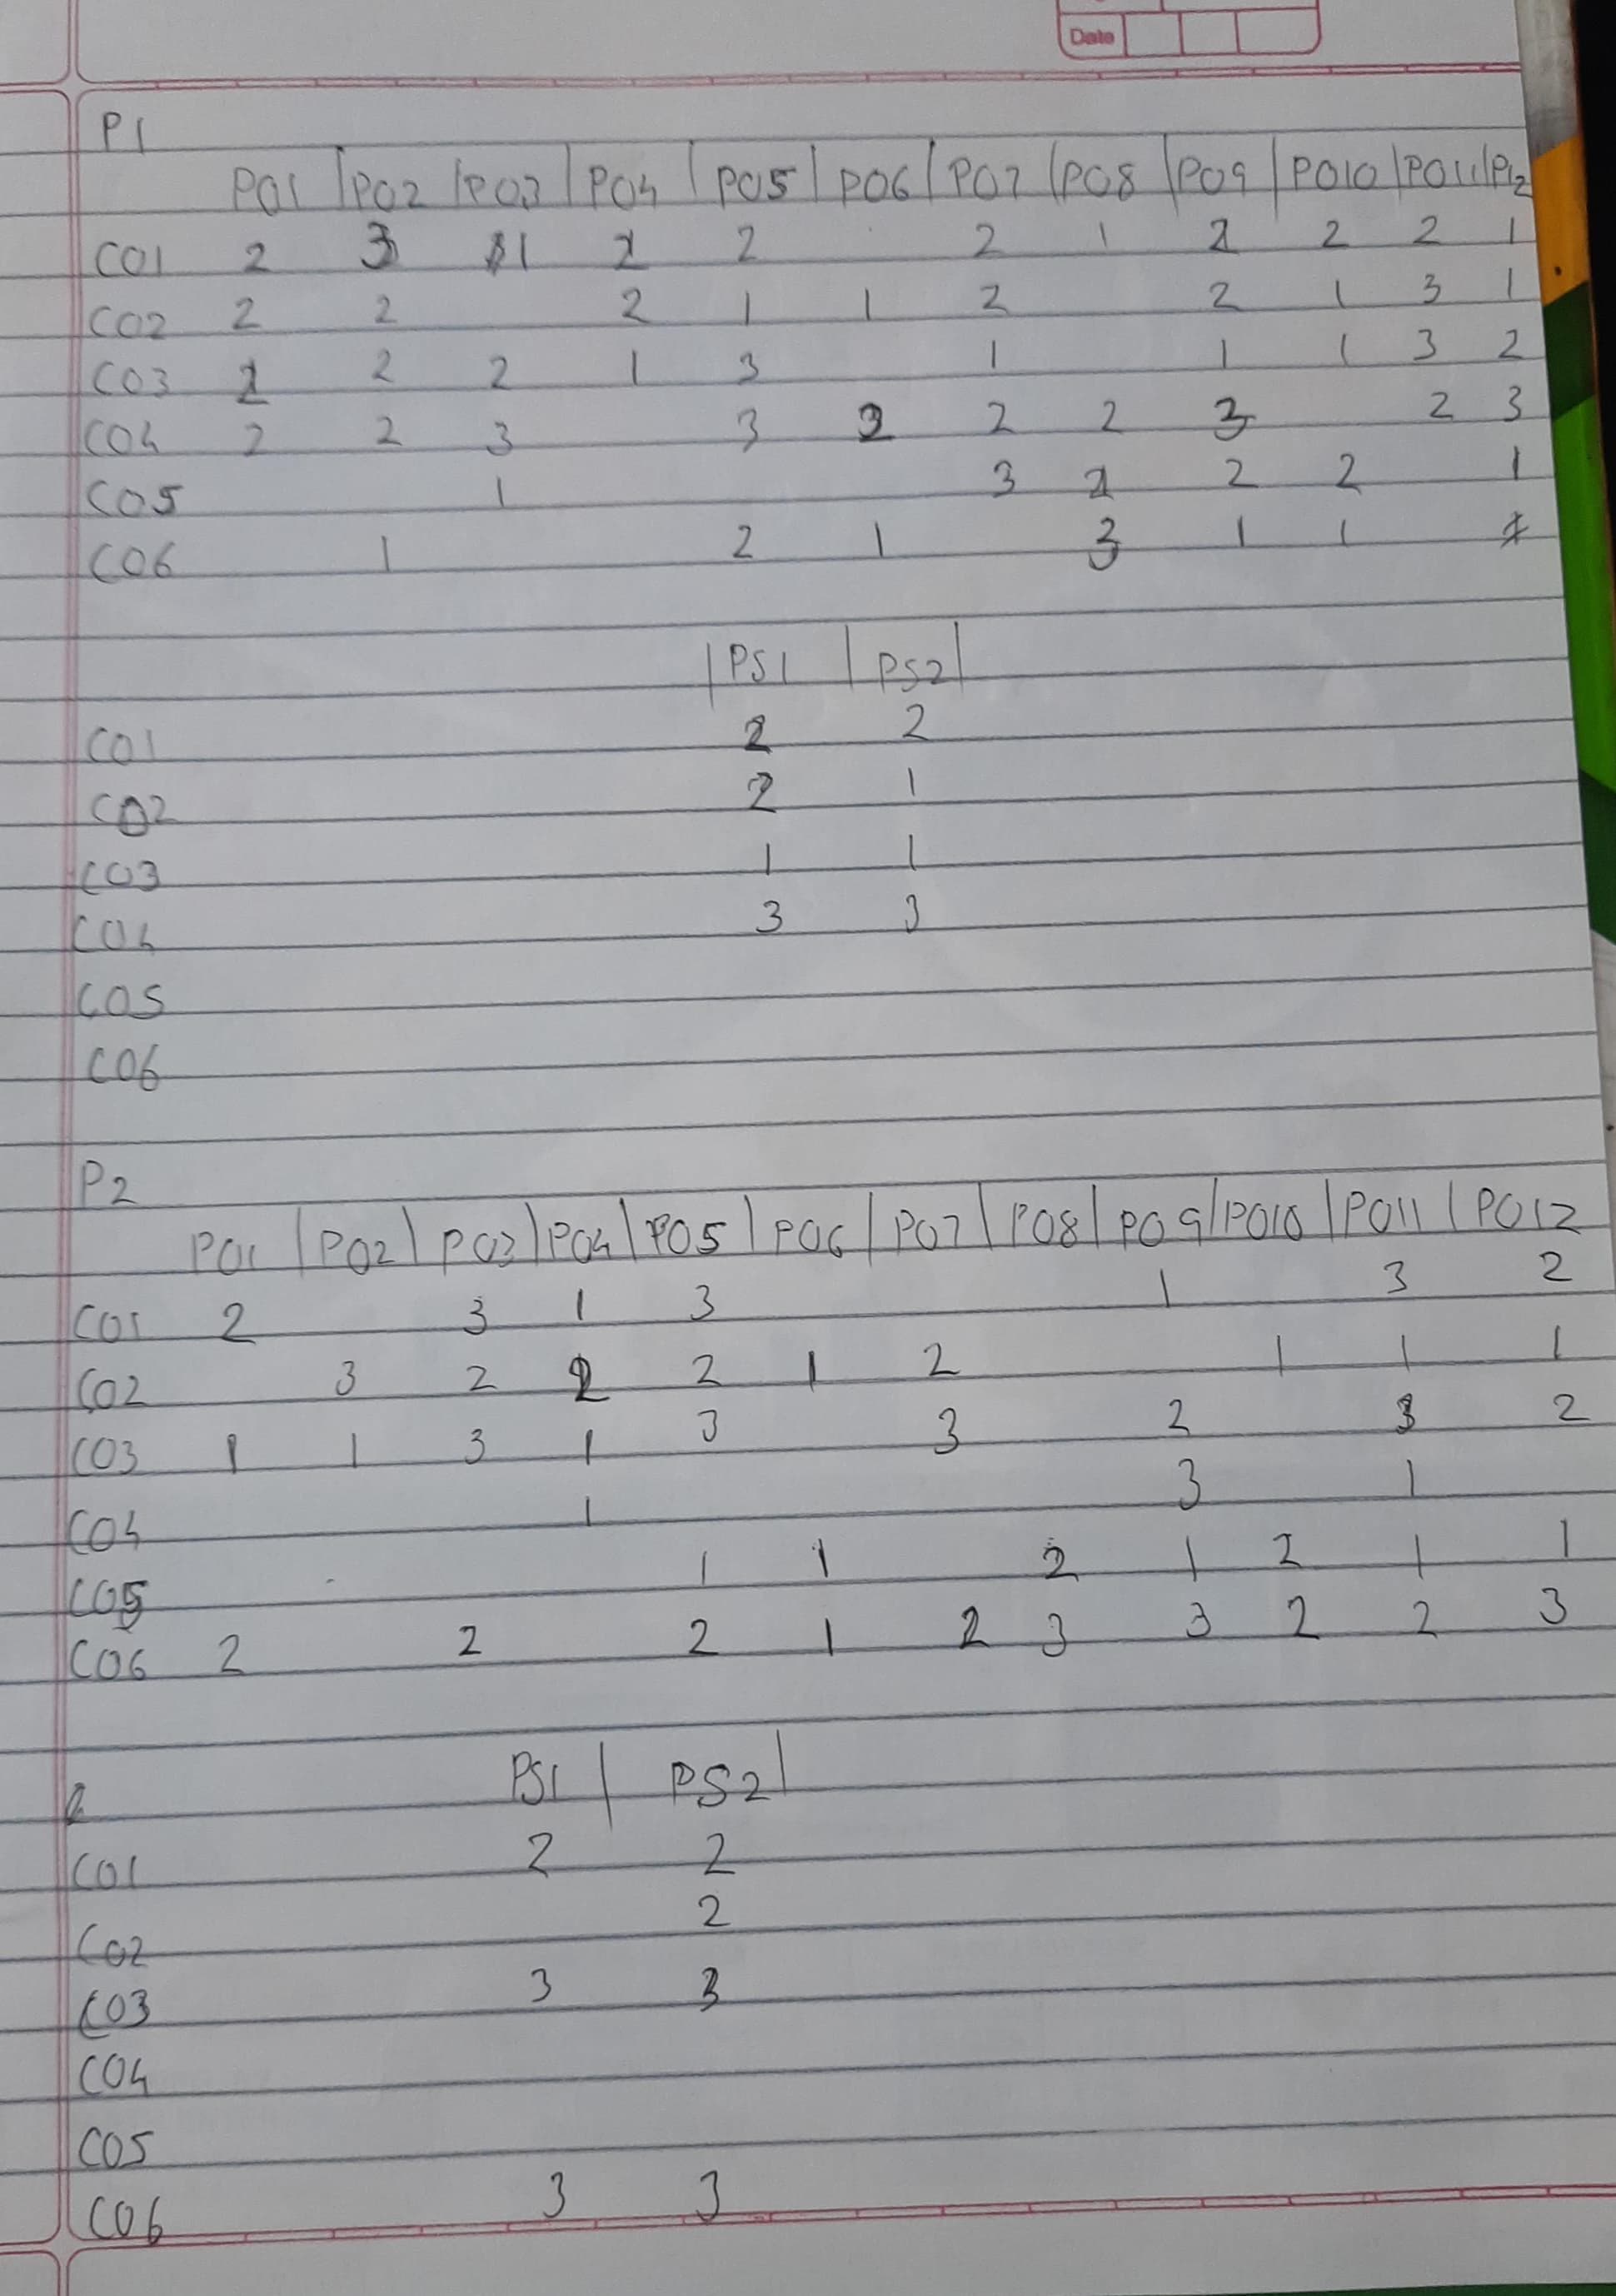 Date
P1
PO1 | PO2 | PO3 | PO4 | PO5 | PO6 | PO7 | PO8 | PO9 | PO10 | PO11 | P12
CO1 2 3 1 2 2 1 2 2 1
CO2 2 2 2 1 1 2 2 1 3 1
CO3 2 2 1 3 1 1 1 3 2
CO4 2 2 3 3 2 2 2 3 2 3
CO5 1 3 2 2 1
CO6 1 2 1 3 1 1
| PS1 | PS2 |
CO1 2 2
CO2 2 1
CO3 1 1
CO4 3 3
CO5
CO6
P2
PO1 | PO2 | PO3 | PO4 | PO5 | PO6 | PO7 | PO8 | PO9 | PO10 | PO11 | PO12
CO1 2 3 1 3 1 3 2
CO2 3 2 2 2 1 2 1 1 1
CO3 1 1 3 1 3 3 2 3 2
CO4 1 3 1
CO5 1 1 2 1 2 1 1
CO6 2 2 2 1 2 3 3 2 2 3
PS1 | PS2 |
CO1 2 2
CO2 2
CO3 3 3
CO4
CO5
CO6 3 3